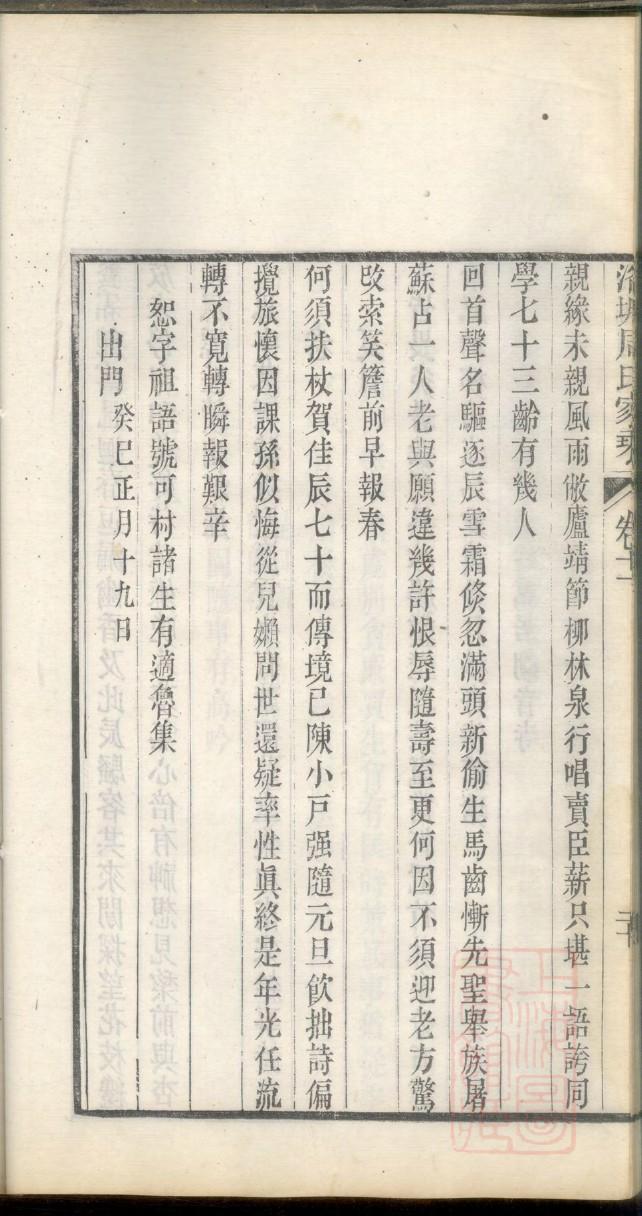 周氏家乘 卷十一
親緣未親風雨敝廬靖節柳林泉行唱賣臣薪只堪一語誇同
學七十三齡有幾人
回首聲名驅逐辰雪霜倐忽滿頭新偷生馬齒慚先聖舉族屠
蘇占一人老與願違幾許恨辱隨壽至更何因不須迎老方驚
改索笑簷前早報春
何須扶杖賀佳辰七十而傳境已陳小戸强隨元旦飲拙詩偏
攪旅懷因課孫似悔從兒嬾問世還疑率性眞終是年光任流
轉不寬轉瞬報艱辛
恕字祖語號可村諸生有適魯集
出門 癸巳正月十九日